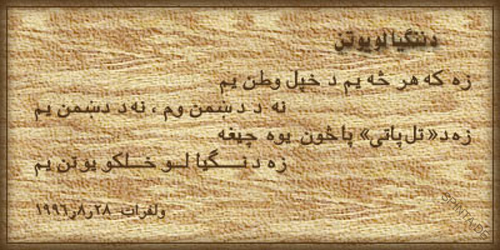 د ننګيالو يو تن
زه که هر څه يم د خپل وطن يم
نه د دښمن وم ، نه د دښمن يم
زه د «تل پاتې» پاڅون يوه چيغه
زه د ننګيالو خلکو يو تن يم
ولفرات ۲۸ر۸ر۱۹۹٦